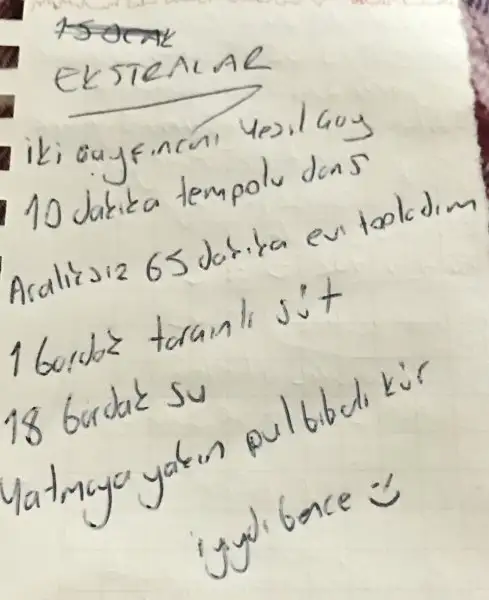 15 OCAK
EKSTRALAR
iki çay fincanı yeşil çay
10 dakika tempolu dans
Aralıksız 65 dakika evi topladım
1 bardak tarçınlı süt
18 bardak su
Yatmaya yakın pul biberli kür
iyydi bence :)